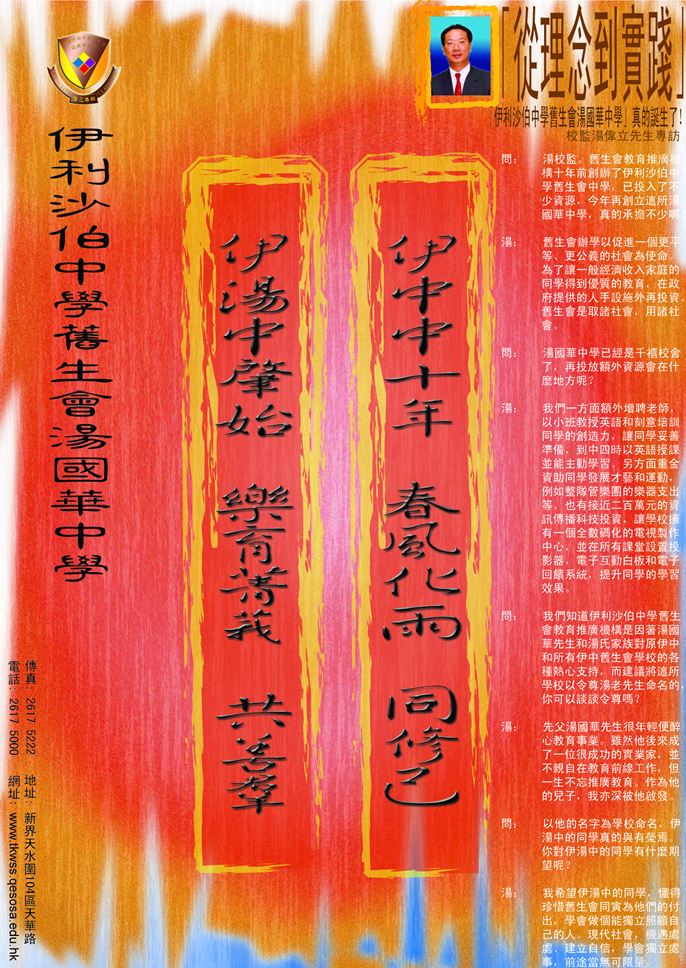 「從理念到實踐」
「伊利沙伯中學舊生會湯國華中學」真的誕生了!
校監湯偉立先生專訪
伊利沙伯中學舊生會湯國華中學
伊中中十年 春風化雨 同修己
伊湯中肇始 樂育菁莪 共善羣
問: 湯校監，舊生會教育推廣機
構十年前創辦了伊利沙伯中
學舊生會中學，已投入了不
少資源，今年再創立這所湯
國華中學，真的承擔不少啊!
湯: 舊生會辦學以促進一個更平
等、更公義的社會為使命。
為了讓一般經濟收入家庭的
同學得到優質的教育，在政
府提供的人手設施外再投資，
舊生會是取諸社會，用諸社
會。
問: 湯國華中學已經是千禧校舍
了，再投放額外資源會在什
麼地方呢?
湯: 我們一方面額外增聘老師，
以小班教授英語和刻意培訓
同學的創造力，讓同學妥善
準備，到中四時以英語授課
並能主動學習。另方面重金
資助同學發展才藝和運動，
例如整隊管樂團的樂器支出
等。也有接近二百萬元的資
訊傳播科技投資，讓學校擁
有一個全數碼化的電視製作
中心，並在所有課堂設置投
影器，電子互動白板和電子
回饋系統，提升同學的學習
效果。
問: 我們知道伊利沙伯中學舊生
會教育推廣機構是因著湯國
華先生和湯氏家族對原伊中
和所有伊中舊生會學校的各
種熱心支持，而建議將這所
學校以令尊湯老先生命名的，
你可以談談令尊嗎?
湯: 先父湯國華先生很年輕便醉
心教育事業。雖然他後來成
了一位很成功的實業家，並
不親自在教育前線工作，但
一生不忘推廣教育。作為他
的兒子，我亦深被他啟發。
問: 以他的名字為學校命名，伊
湯中的同學真的與有榮焉。
你對伊湯中的同學有什麼期
望呢?
湯: 我希望伊湯中的同學，懂得
珍惜舊生會同寅為他們的付
出，學會做個能獨立照顧自
己的人。現代社會，機遇處
處、建立自信，學會獨立處
事，前途當無可限量。
傳真: 2617 5222 地址: 新界天水圍104區天華路
電話: 2617 5000 網址: www.tkwss.qesosa.edu.hk